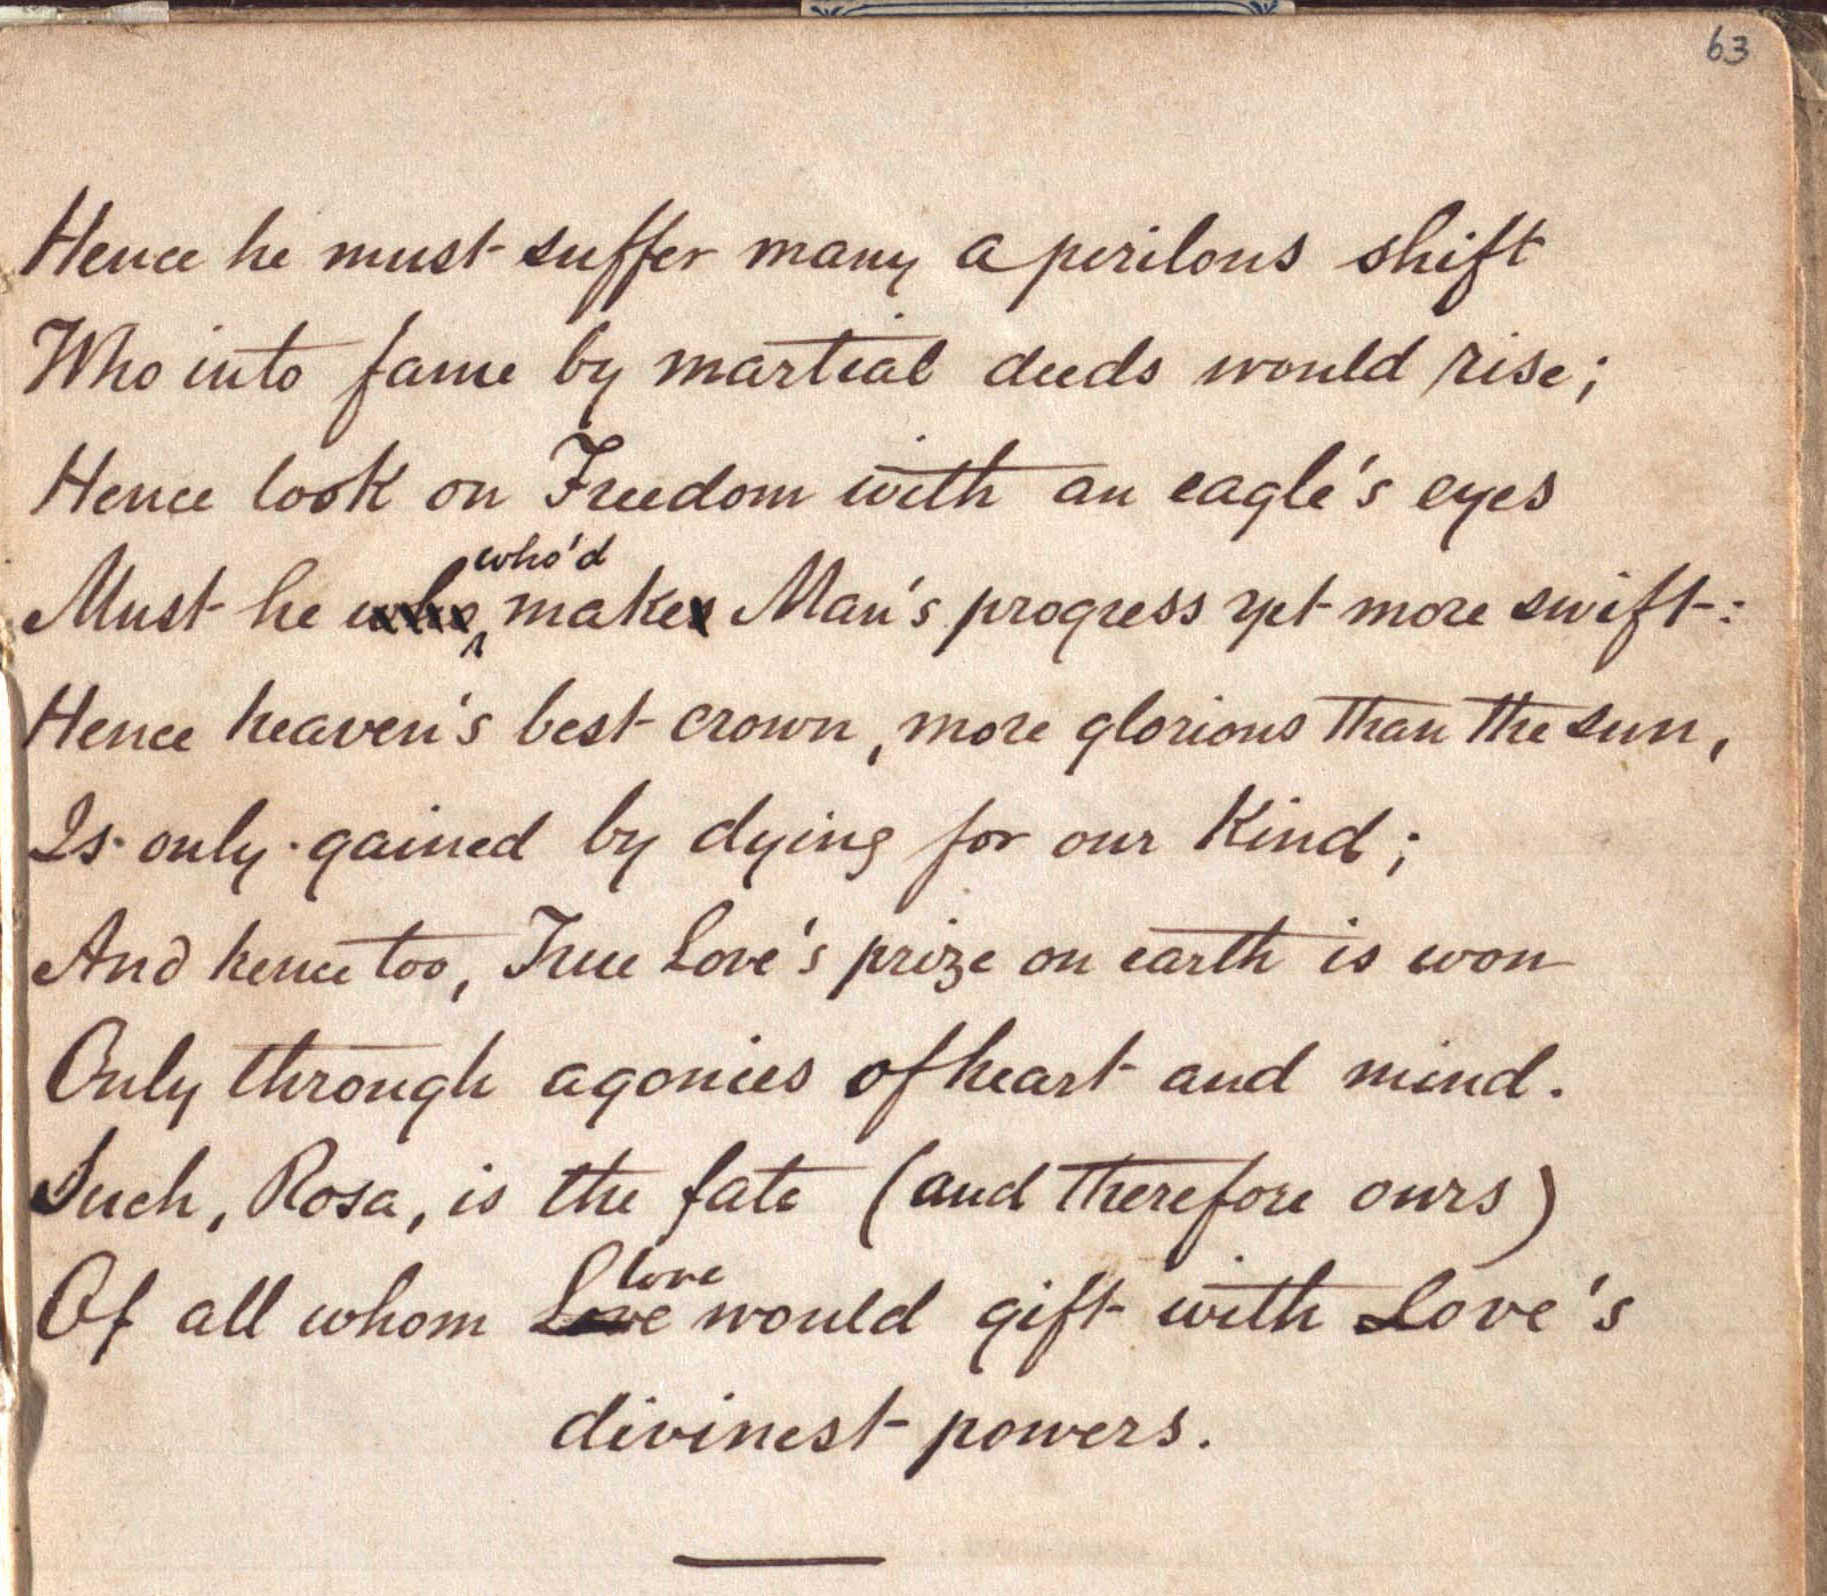 63
Hence he must suffer many a perilous shift
Who into fame by martial deeds would rise;
Hence look on Freedom with an eagle's eyes
who'd
Must he who makes Man's progress yet more swift:
Hence heaven's best crown, more glorious than the sun,
Is only gained by dying for our Kind;
And hence too, True Love's prize on earth is won
Only through agonies of heart and mind.
Such, Rosa, is the fate (and therefore ours)
love
Of all whom Love would gift with Love's
divinest powers.